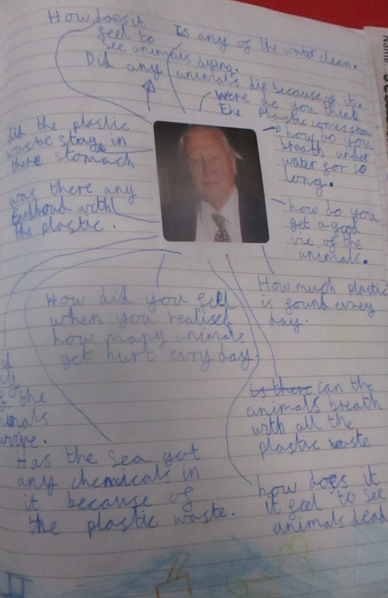 How does it
feel to
see animals dying.
Is any of the water clean.
Did any animals die because of it.
were do you think
the plastic comes from
did the plastic
waste stay in
there stomach
how do you
breath under
water for so
long.
was there any
with
the plastic.
how do you
get a good
vic of the
animals.
How much plastic
is found evrey
day.
How did you fell
when you realised
how many animals
get hurt evry day.
the
is there can the
animals breath
with all the
plastic waste
Has the sea got
any chemicals in
it because of
the plastic waste.
how does it
it feel to see
animals dead